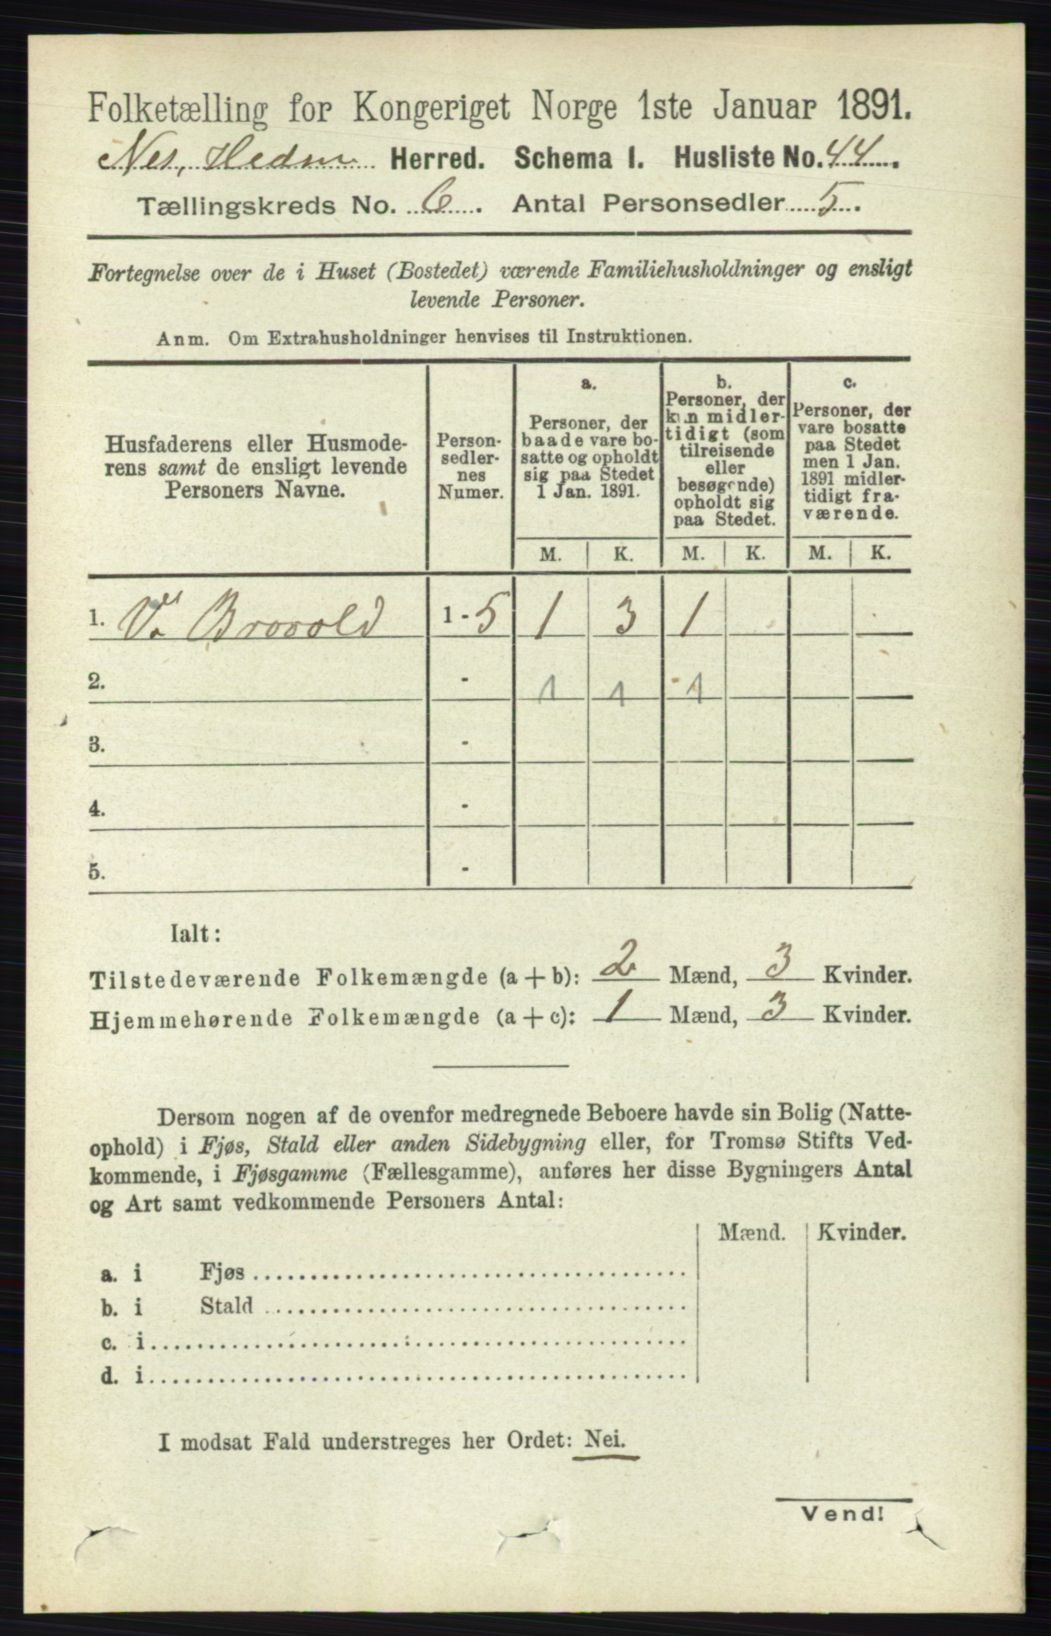 Folketælling for Kongeriget Norge 1ste Januar 1891.
Nes, Hedm Herred. Schema I. Husliste No. 44.
Tællingskreds No. 6. Antal Personsedler 5.
Fortegnelse over de i Huset (Bostedet) værende Familiehusholdninger og ensligt
levende Personer.
Anm. Om Extrahusholdninger henvises til Instruktionen.
Husfaderens eller Husmode-
rens samt de ensligt levende
Personers Navne.
Person-
sedler-
nes
Numer.
a.
Personer, der
baade vare bo-
satte og opholdt
sig paa Stedet
1 Jan. 1891.
b.
Personer, der
kun midler-
tidigt (som
tilreisende
eller
besøgende)
opholdt sig
paa Stedet.
c.
Personer, der
vare bosatte
paa Stedet
men 1 Jan.
1891 midler-
tidigt fra-
værende.
M. K. M. K. M. K.
1. Brovold 1-5 1 3 1
2. - 1 1 1
3. -
4. -
5. -
Ialt:
Tilstedeværende Folkemængde (a+b): 2 Mænd, 3 Kvinder.
Hjemmehørende Folkemængde (a+c): 1 Mænd, 3 Kvinder.
Dersom nogen af de ovenfor medregnede Beboere havde sin Bolig (Natte-
ophold) i Fjøs, Stald eller anden Sidebygning eller, for Tromsø Stifts Ved-
kommende, i Fjøsgamme (Fællesgamme), anføres her disse Bygningers Antal
og Art samt vedkommende Personers Antal:
Mænd. Kvinder.
a. i Fjøs
b. i Stald
c. i
d. i
I modsat Fald understreges her Ordet: Nei.
Vend!